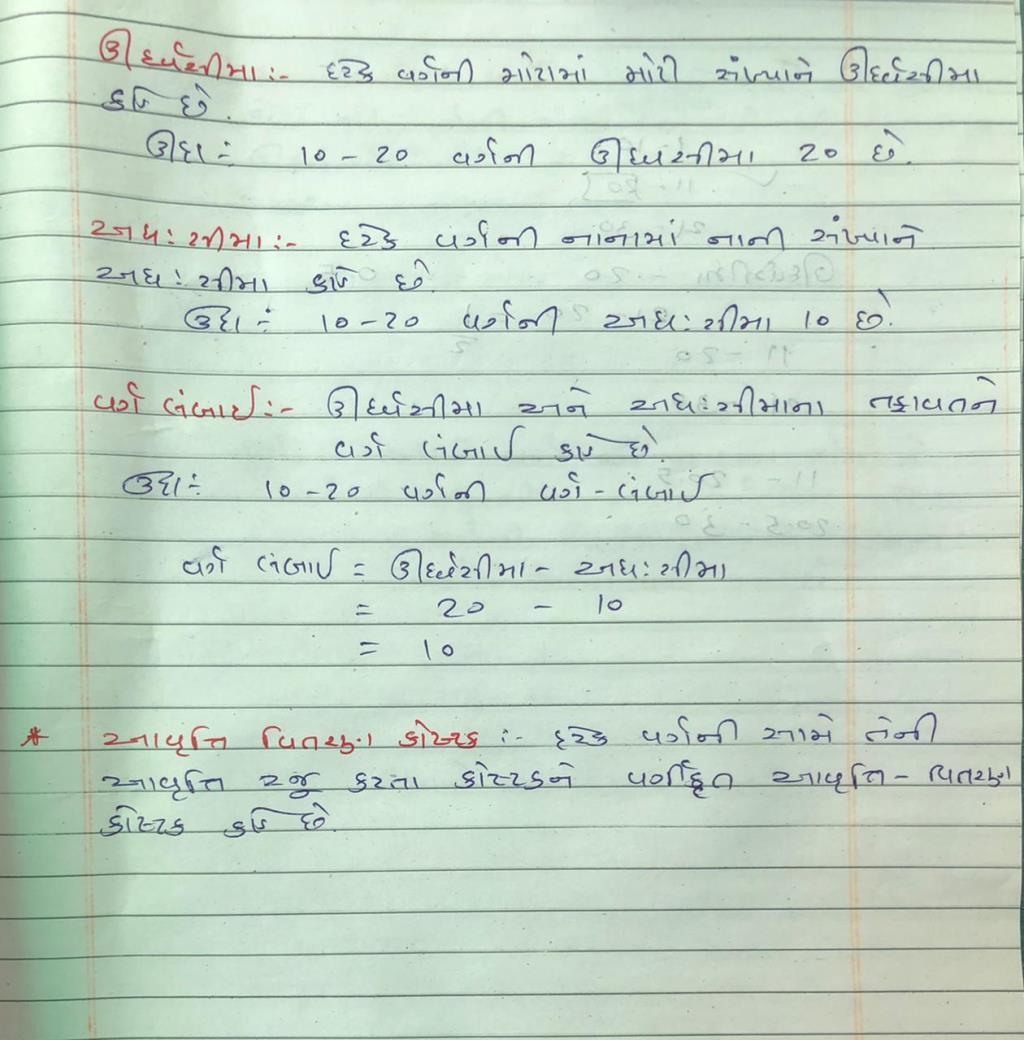 ઊર્ધ્વસીમા :- દરેક વર્ગની મોટામાં મોટી સંખ્યાને ઊર્ધ્વસીમા
કહે છે.
ઊદા :- 10 - 20 વર્ગની ઊર્ધ્વસીમા 20 છે.
અધઃસીમા :- દરેક વર્ગની નાનામાં નાની સંખ્યાને
અધઃસીમા કહે છે.
ઉદા :- 10 - 20 વર્ગની અધઃસીમા 10 છે.
વર્ગ લંબાઈ :- ઊર્ધ્વસીમા અને અધઃસીમાના તફાવતને
વર્ગ લંબાઈ કહે છે.
ઉદા :- 10 - 20 વર્ગની વર્ગ - લંબાઈ
વર્ગ લંબાઈ = ઊર્ધ્વસીમા - અધઃસીમા
= 20 - 10
= 10
* આવૃત્તિ વિતરણ કોષ્ટક :- દરેક વર્ગની સામે તેની
આવૃત્તિ રજૂ કરતા કોષ્ટકને વર્ગીકૃત આવૃત્તિ - વિતરણ
કોષ્ટક કહે છે.